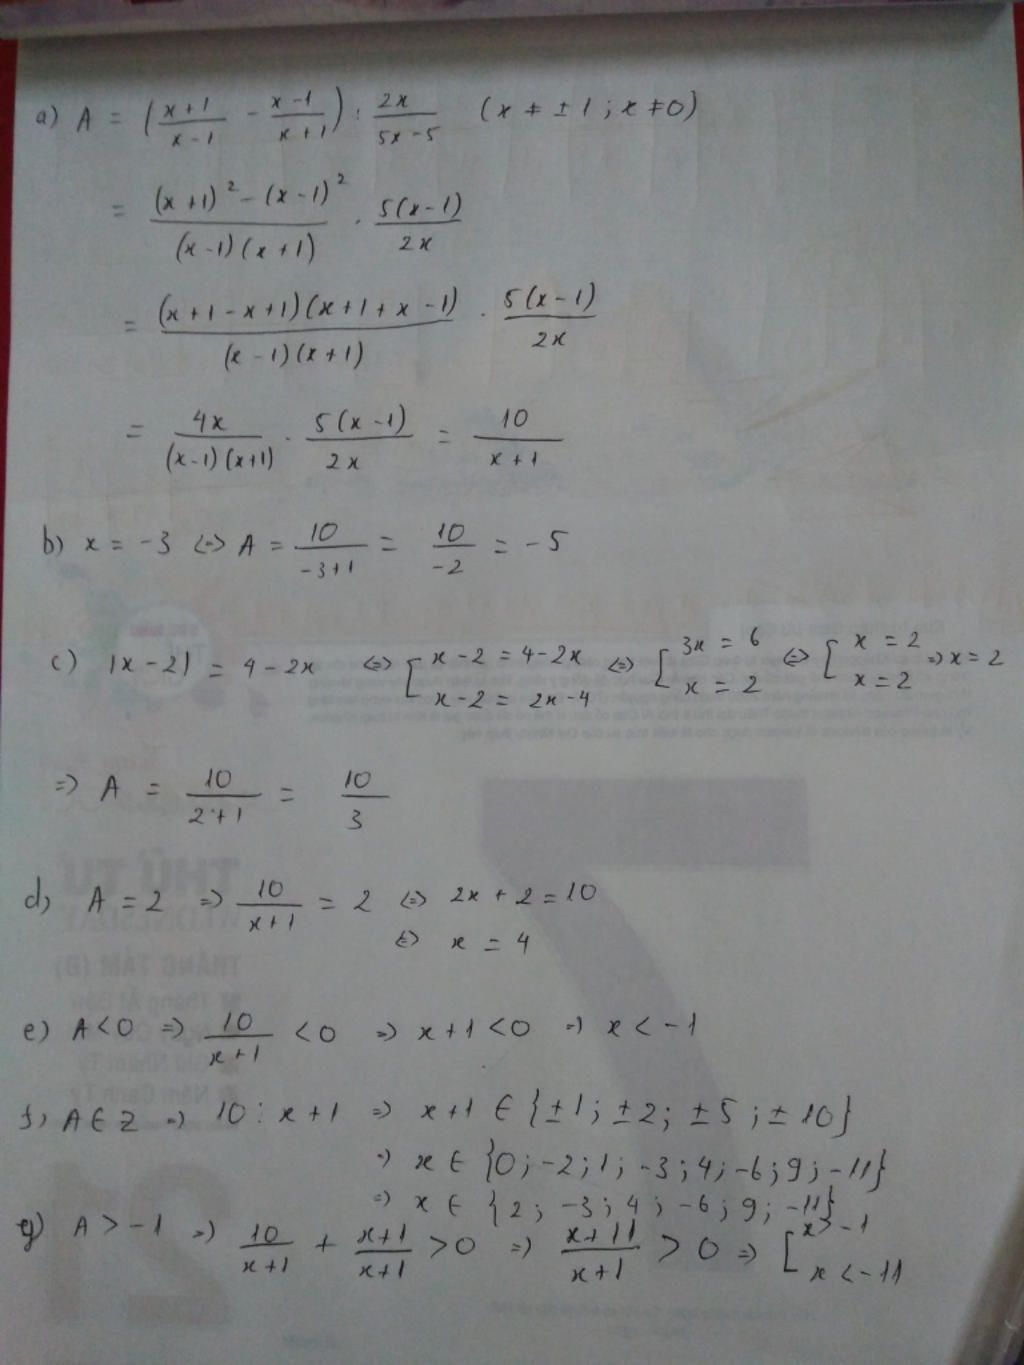 a) A = (x+1/x-1 - x-1/x+1) : 2x/5x-5 (x ≠ ±1 ; x ≠ 0)
= (x+1)² - (x-1)²/(x-1)(x+1) . 5(x-1)/2x
= (x+1-x+1)(x+1+x-1)/(x-1)(x+1) . 5(x-1)/2x
= 4x/(x-1)(x+1) . 5(x-1)/2x = 10/x+1
b) x = -3 <=> A = 10/-3+1 = 10/-2 = -5
c) |x-2| = 4-2x <=> [x-2 = 4-2x ; x-2 = 2x-4 <=> [3x = 6 ; x = 2 <=> [x = 2 ; x = 2 => x = 2
=> A = 10/2+1 = 10/3
d) A = 2 => 10/x+1 = 2 <=> 2x+2 = 10
<=> x = 4
e) A<0 => 10/x+1 <0 => x+1 <0 => x < -1
f) A ∈ Z => 10 : x+1 => x+1 ∈ {±1 ; ±2 ; ±5 ; ±10}
=> x ∈ {0 ; -2 ; 1 ; -3 ; 4 ; -6 ; 9 ; -11}
=> x ∈ {2 ; -3 ; 4 ; -6 ; 9 ; -11}
g) A > -1 => 10/x+1 + x+1/x+1 >0 => x+11/x+1 > 0 => [x > -1 ; x < -11
THỨ TƯ
WEDNESDAY
THÁNG TÁM (Đ)
7
21